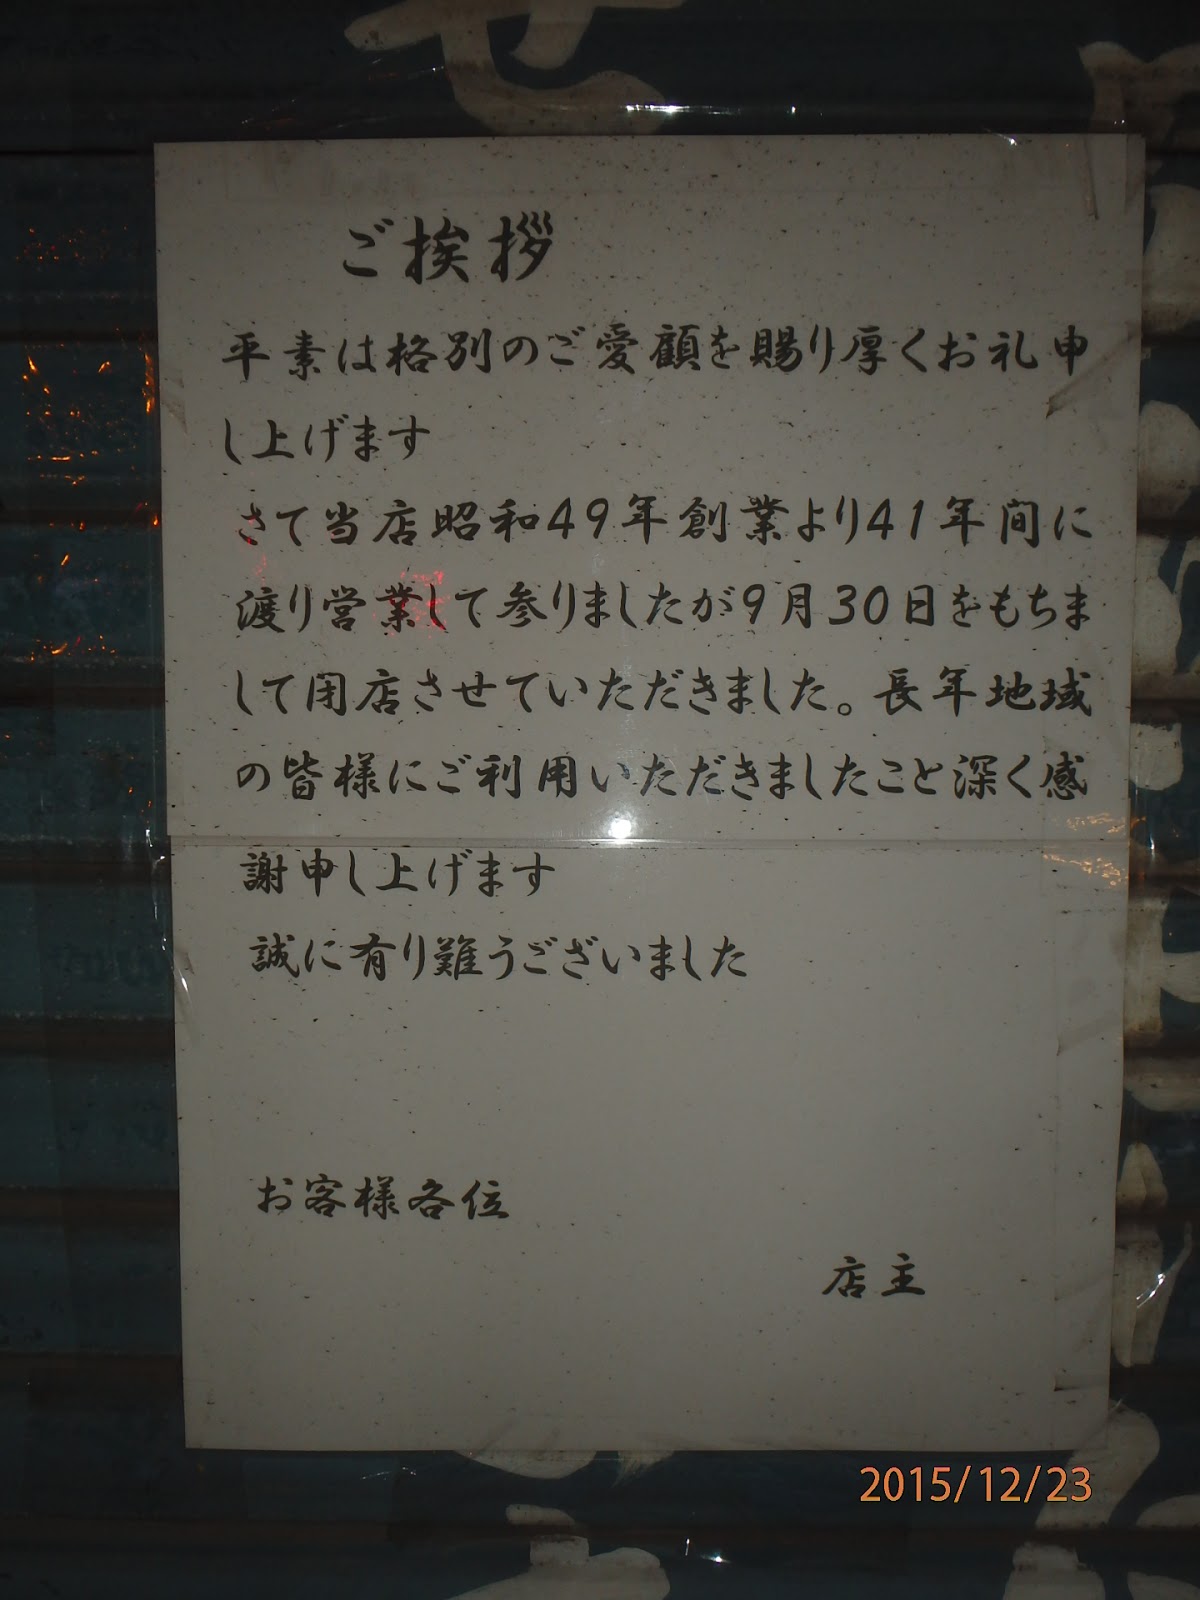 ご挨拶
平素は格別のご愛顧を賜り厚くお礼申
し上げます
さて当店昭和49年創業より41年間に
渡り営業して参りましたが9月30日をもちま
して閉店させていただきました。長年地域
の皆様にご利用いただきましたこと深く感
謝申し上げます
誠に有り難うございました
お客様各位
店主
2015/12/23